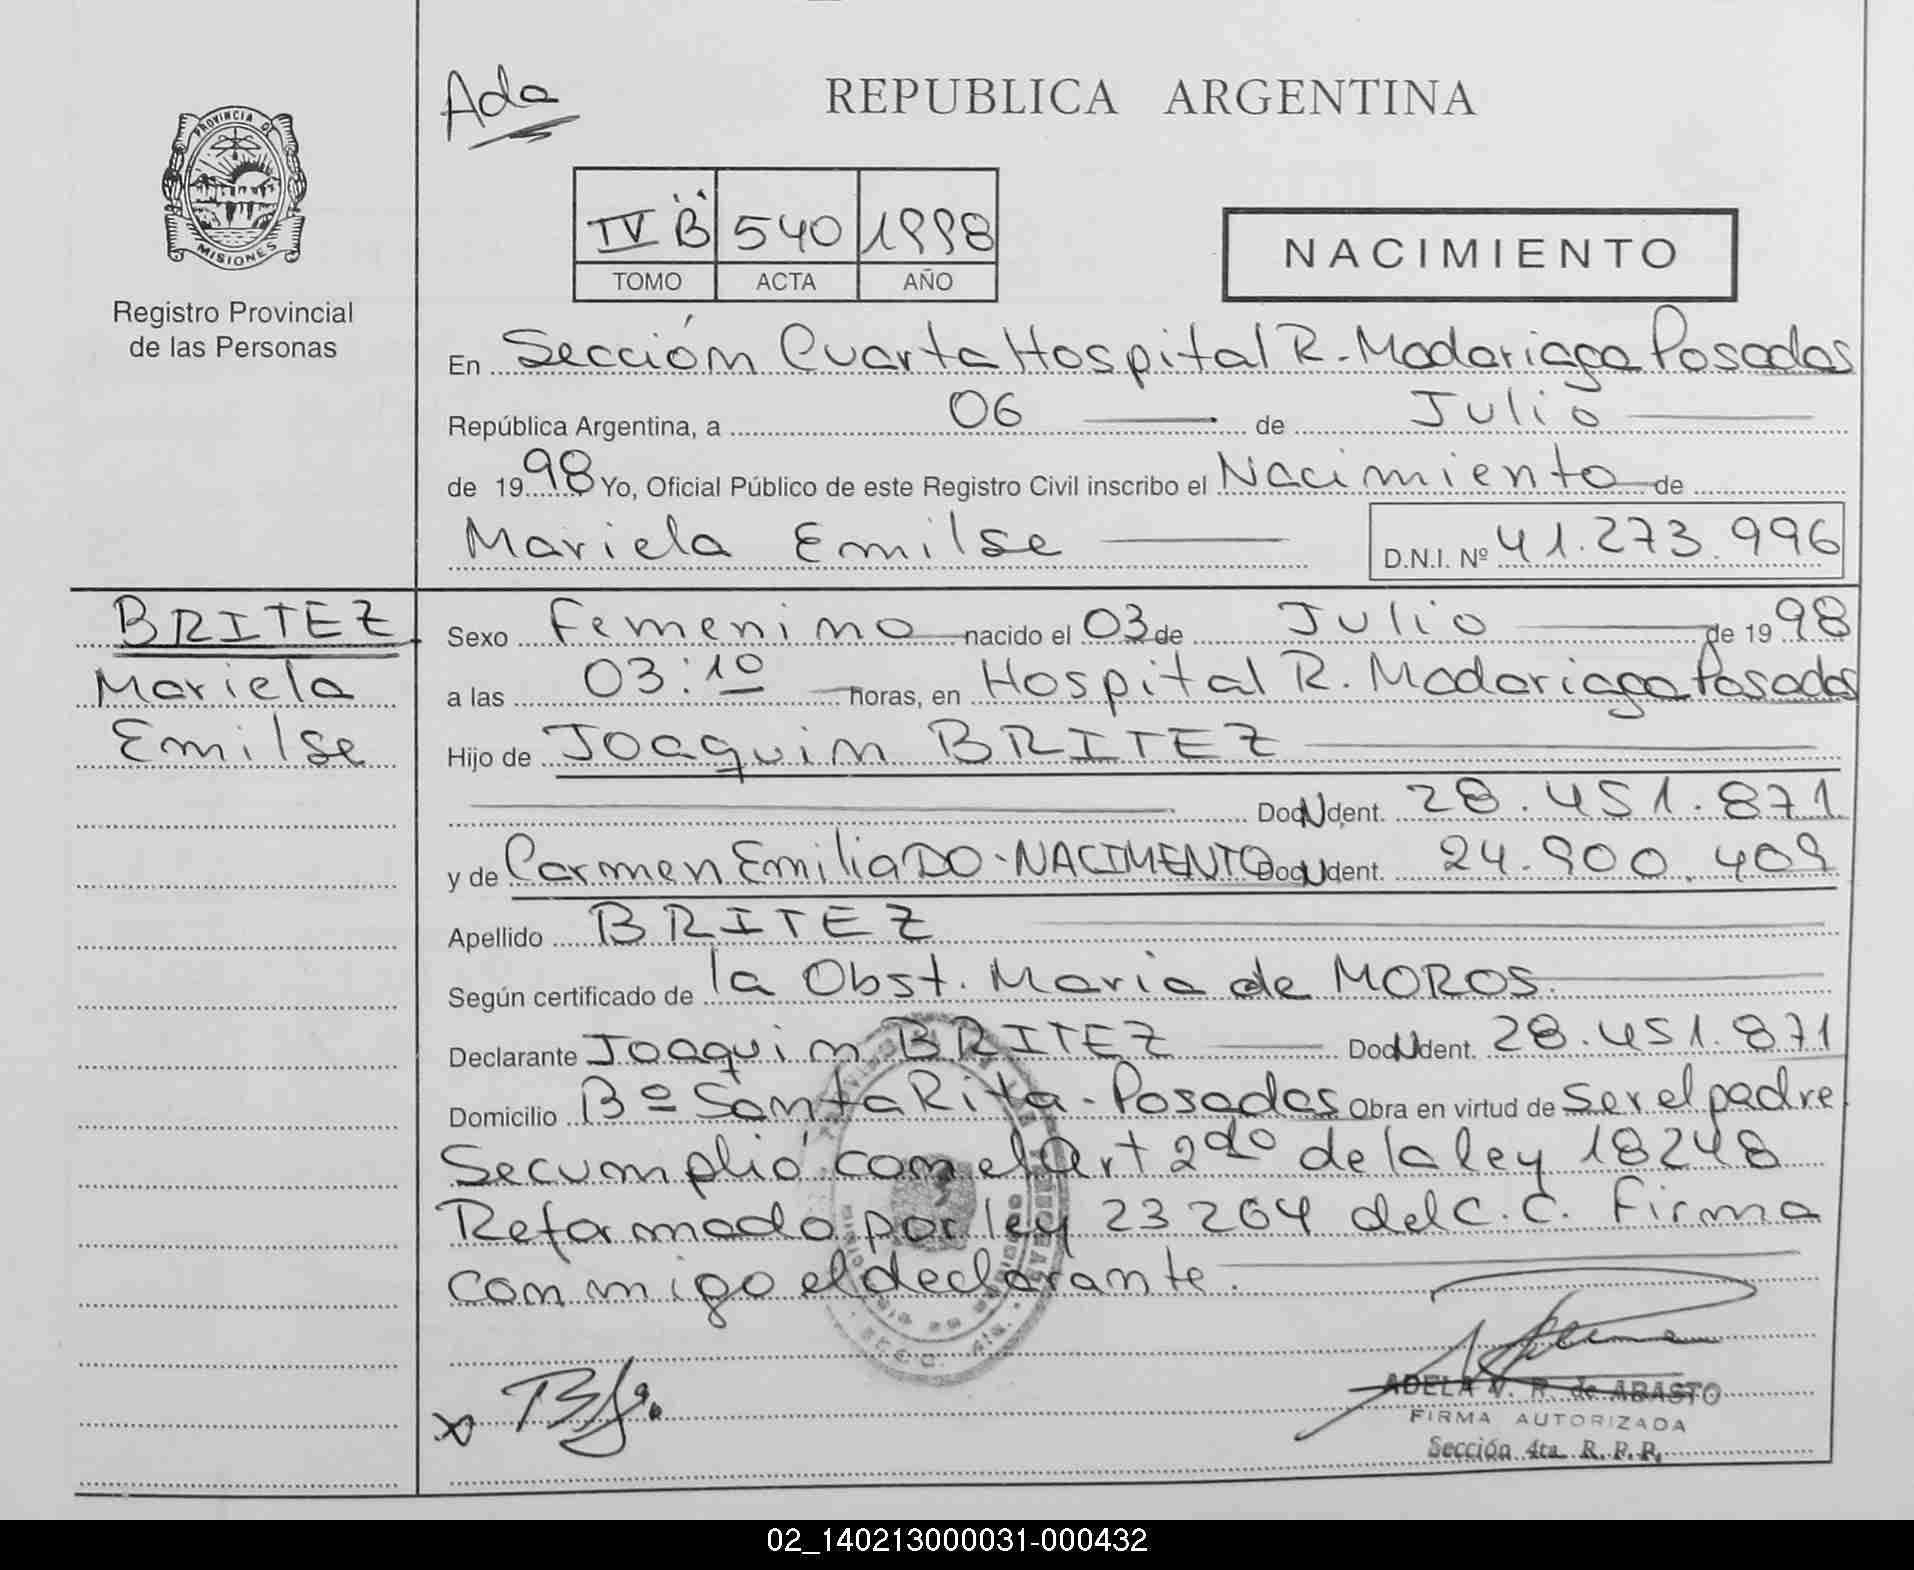 PROVINCIA DE
MISIONES
Registro Provincial
de las Personas
Ada
REPUBLICA ARGENTINA
IV "B" 540 1998
TOMO ACTA AÑO
NACIMIENTO
En Sección Cuarta Hospital R. Madariaga Posadas
República Argentina, a 06 de Julio
de 1998 Yo, Oficial Público de este Registro Civil inscribo el Nacimiento de
Mariela Emilse D.N.I. Nº 41.273.996
BRITEZ
Mariela
Emilse
Sexo Femenino nacido el 03 de Julio de 1998
a las 03:10 horas, en Hospital R. Madariaga Posadas
Hijo de Joaquin BRITEZ
Doc. Ident. 28.451.871
y de Carmen Emilia DO-NACIMENTO Doc. Ident. 24.900.409
Apellido BRITEZ
Según certificado de la Obst. Maria de MOROS.
Declarante Joaquin BRITEZ Doc. Ident. 28.451.871
Domicilio Bº Santa Rita - Posadas Obra en virtud de ser el padre
Se cumplió con el Art 2do de la ley 18248
Reformado por ley 23264 del C.C. Firma
conmigo el declarante.
ADELA V. R. de ABASTO
FIRMA AUTORIZADA
Sección 4ta R. P. P.
02_140213000031-000432